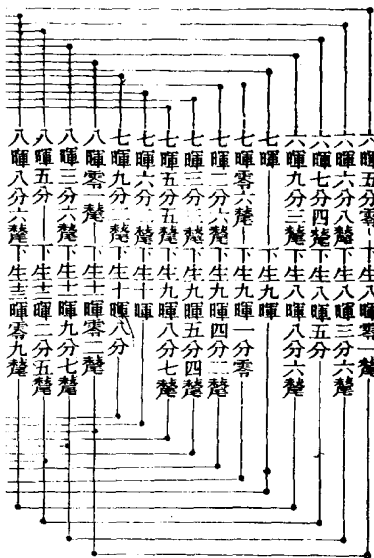 六暉五分零一下生八暉零一釐
六暉六分八釐下生八暉三分六釐
六暉七分四釐下生八暉五分
六暉九分三釐下生八暉八分六釐
七暉下生九暉
七暉零六釐下生九暉一分零
七暉二分六釐下生九暉四分二釐
七暉三分 下生九暉五分四釐
七暉五分五釐下生九暉八分七釐
七暉六分 釐下生十暉
七暉九分 釐下生十暉八分
八暉零一釐下生十一暉零二釐
八暉三分六釐下生十一暉九分七釐
八暉五分下生十二暉二分五釐
八暉八分六釐下生十三暉零九釐